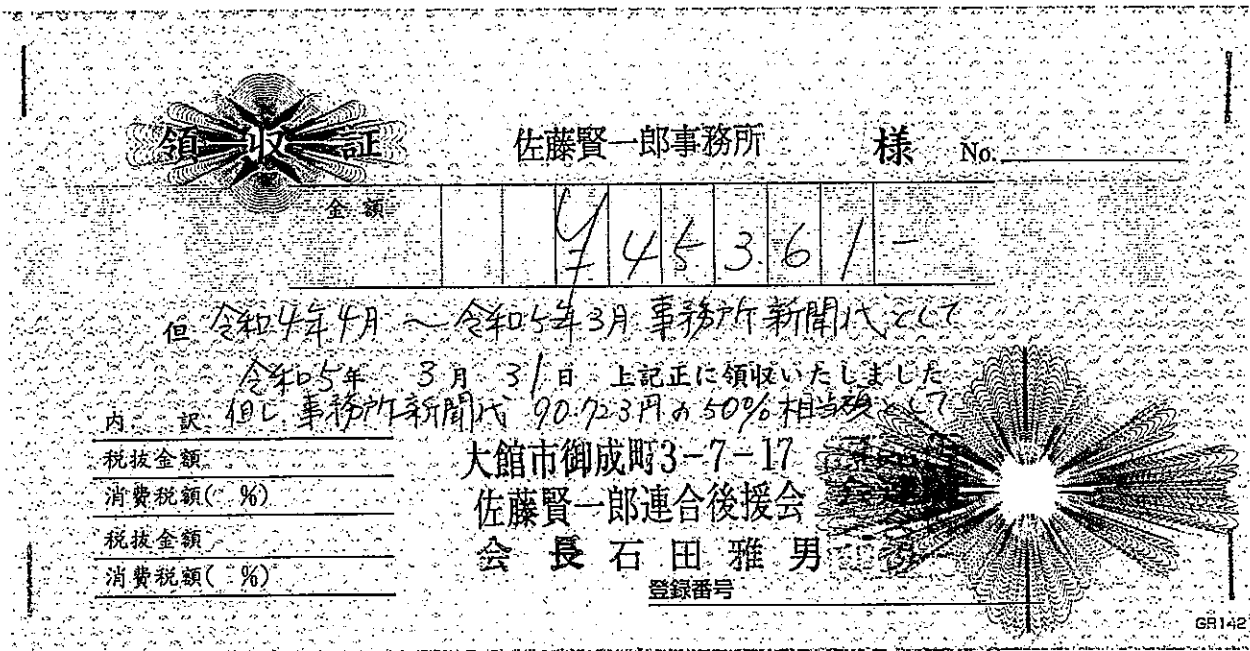 領収証
佐藤賢一郎事務所 様 No.
金額 ¥45361-
但 令和4年4月～令和5年3月 事務所新聞代として
令和5年 3月 31日 上記正に領収いたしました
内 訳 但し 事務所新聞代 90.723円の50%相当額として
税抜金額
消費税額( %)
税抜金額
消費税額( %)
大館市御成町3-7-17
佐藤賢一郎連合後援会
会長 石田雅男
登録番号
GR142